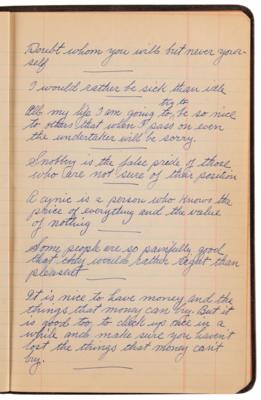 Doubt whom you will but never your-
self
I would rather be sick than idle
try to
All my life I am going to be so nice
to others that when I pass on even
the undertaker will be sorry
Snobbery is the false pride of those
who are not sure of their position
A cynic is a person who knows the
price of everything and the value
of nothing
Some people are so painfully good
that they would rather right than
pleasant
It is nice to have money and the
things that money can buy. But it
is good too, to check up once in a
while and make sure you haven't
lost the things that money can't
buy.